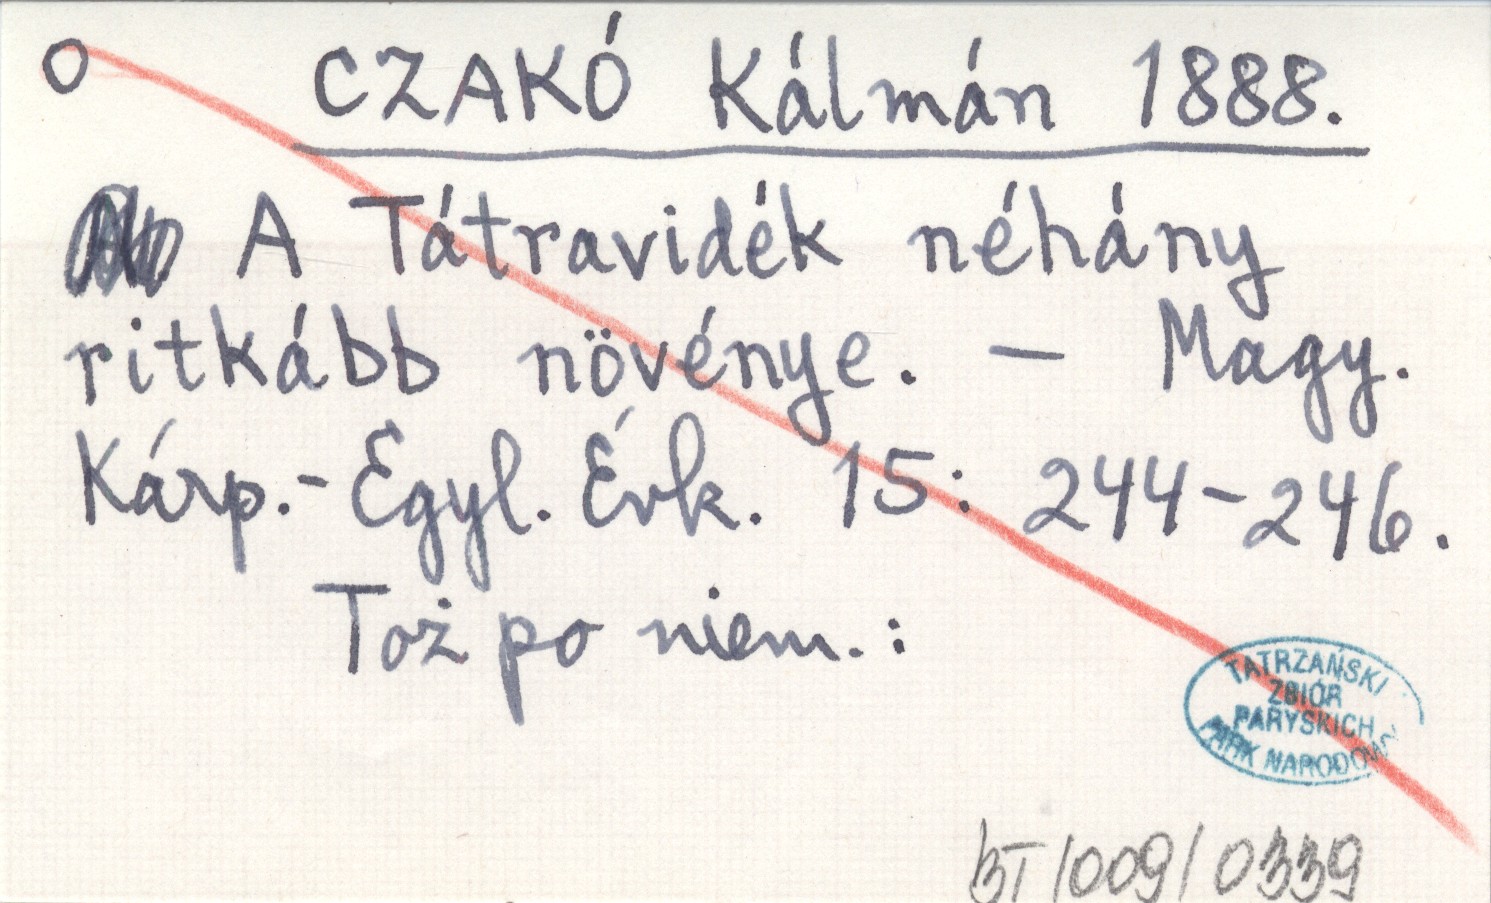 O CZAKÓ Kálmán 1888.
A Tátravidék néhány
ritkább növénye. – Magy.
Kárp.-Egyl. Évk. 15: 244-246.
Toż po niem.:
TATRZAŃSKI
ZBIÓR
PARYSKICH
PARK NARODOWY
BT/009/0339